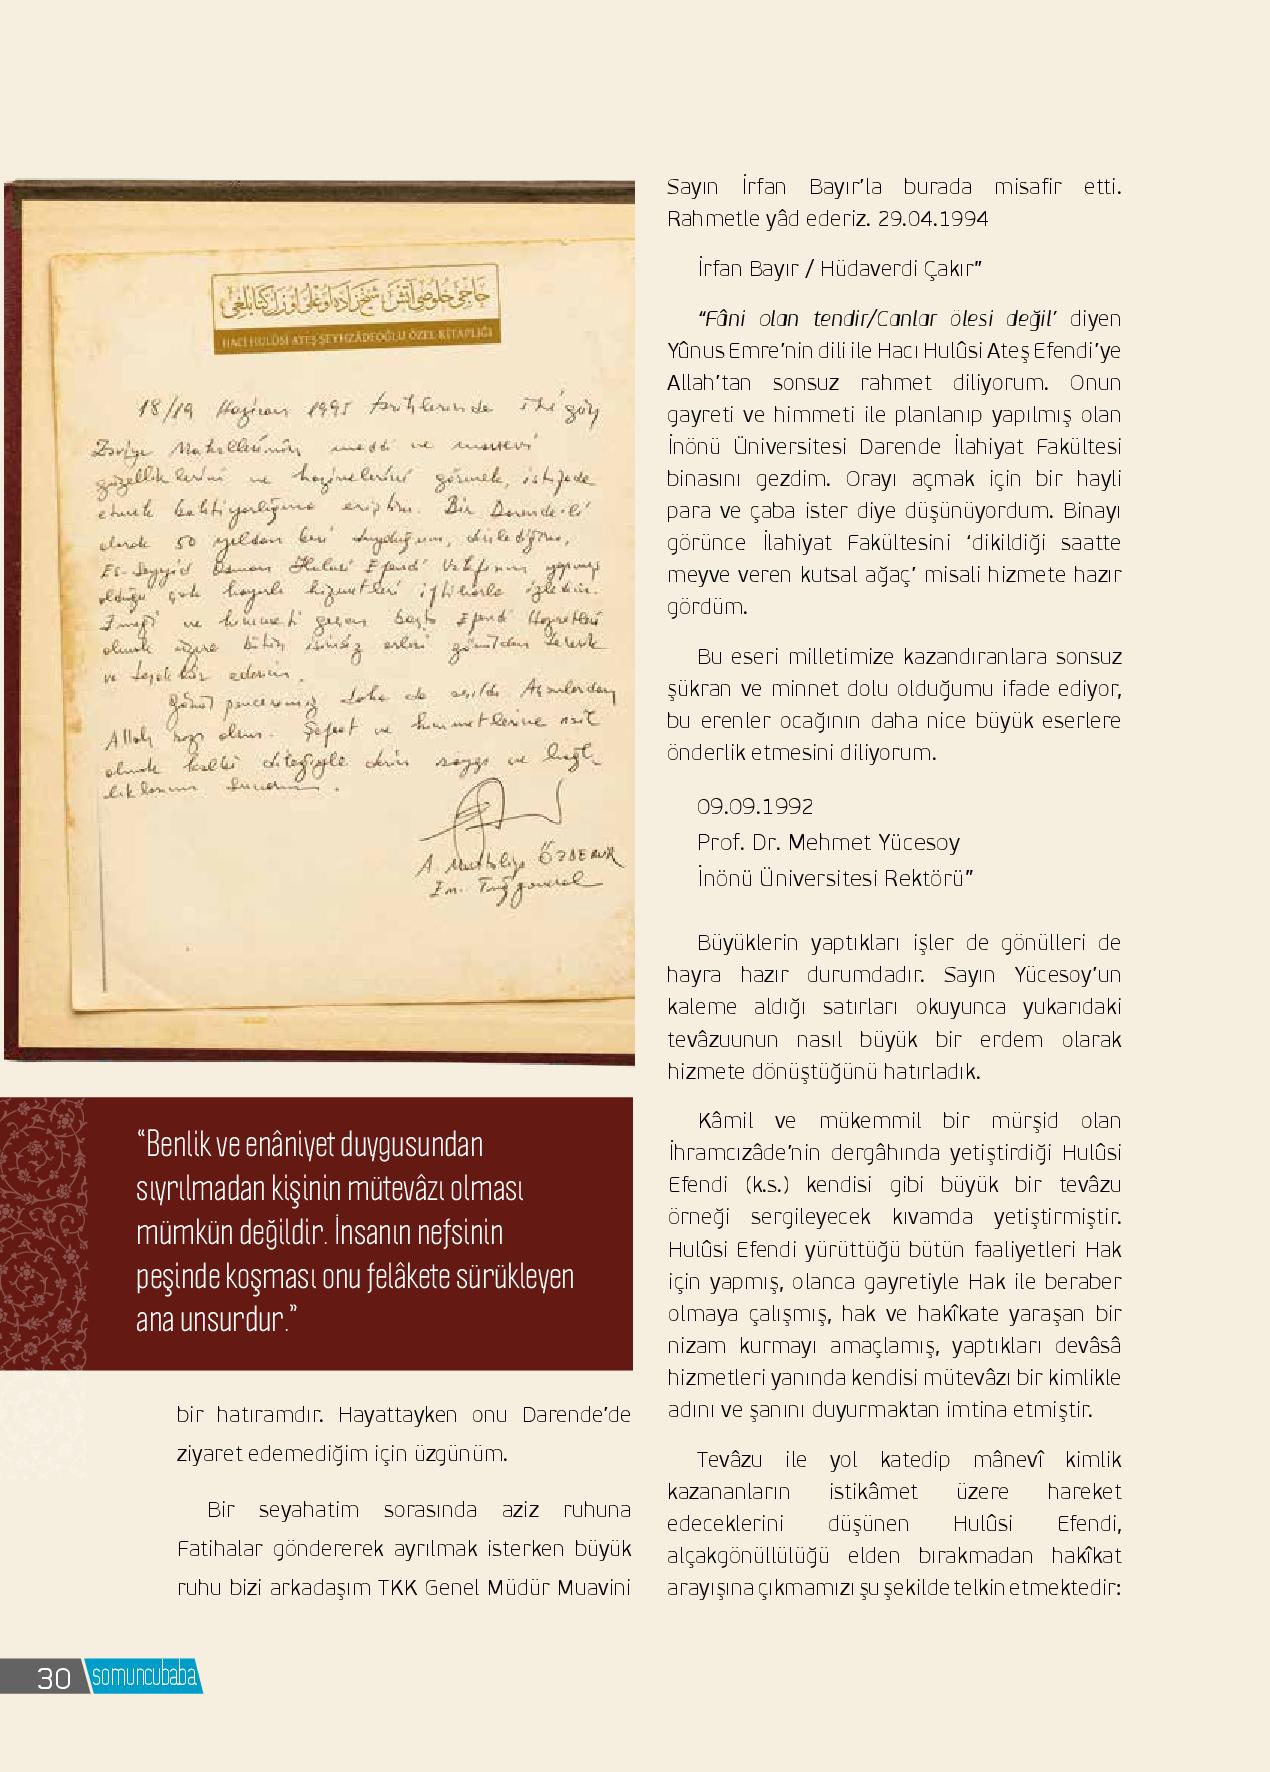 حاجی خلوصی آتش شیخزاده اوغلی اوزل کتابلغی
HACI HULÛSİ ATEŞ ŞEYHZÂDEOĞLU ÖZEL KİTAPLIĞI
18/19 Haziran 1995 tarihlerinde iki gün
Zaviye Mahallesinin maddi ve manevi
güzelliklerini ve hazinelerini görmek, istifade
etmek bahtiyarlığına eriştim. Bir Darende'li
olarak 50 yıldan beri duyduğum, dinlediğim,
Es-Seyyid Osman Hulusi Efendi Vakfının yapmış
olduğu çok hayırlı hizmetleri iftiharla izledim.
Emeği ve himmeti geçen başta Efendi Hazretleri
olmak üzere bütün isimsiz erleri gönülden tebrik
ve teşekkür ederim.
Gönül penceremiz daha da açıldı. Açanlardan
Allah razı olsun. Şefaat ve himmetlerine nail
olmak kalbi dileğiyle derin saygı ve bağlı-
lıklarımı sunarım.
A. ÖZDEMİR
Em. Tuğgeneral
“Benlik ve enâniyet duygusundan
sıyrılmadan kişinin mütevâzı olması
mümkün değildir. İnsanın nefsinin
peşinde koşması onu felâkete sürükleyen
ana unsurdur.”
bir hatıramdır. Hayattayken onu Darende’de
ziyaret edemediğim için üzgünüm.
Bir seyahatim sorasında aziz ruhuna
Fatihalar göndererek ayrılmak isterken büyük
ruhu bizi arkadaşım TKK Genel Müdür Muavini
Sayın İrfan Bayır’la burada misafir etti.
Rahmetle yâd ederiz. 29.04.1994
İrfan Bayır / Hüdaverdi Çakır”
“Fâni olan tendir/Canlar ölesi değil’ diyen
Yûnus Emre’nin dili ile Hacı Hulûsi Ateş Efendi’ye
Allah’tan sonsuz rahmet diliyorum. Onun
gayreti ve himmeti ile planlanıp yapılmış olan
İnönü Üniversitesi Darende İlahiyat Fakültesi
binasını gezdim. Orayı açmak için bir hayli
para ve çaba ister diye düşünüyordum. Binayı
görünce İlahiyat Fakültesini ‘dikildiği saatte
meyve veren kutsal ağaç’ misali hizmete hazır
gördüm.
Bu eseri milletimize kazandıranlara sonsuz
şükran ve minnet dolu olduğumu ifade ediyor,
bu erenler ocağının daha nice büyük eserlere
önderlik etmesini diliyorum.
09.09.1992
Prof. Dr. Mehmet Yücesoy
İnönü Üniversitesi Rektörü”
Büyüklerin yaptıkları işler de gönülleri de
hayra hazır durumdadır. Sayın Yücesoy’un
kaleme aldığı satırları okuyunca yukarıdaki
tevâzuunun nasıl büyük bir erdem olarak
hizmete dönüştüğünü hatırladık.
Kâmil ve mükemmil bir mürşid olan
İhramcızâde’nin dergâhında yetiştirdiği Hulûsi
Efendi (k.s.) kendisi gibi büyük bir tevâzu
örneği sergileyecek kıvamda yetiştirmiştir.
Hulûsi Efendi yürüttüğü bütün faaliyetleri Hak
için yapmış, olanca gayretiyle Hak ile beraber
olmaya çalışmış, hak ve hakîkate yaraşan bir
nizam kurmayı amaçlamış, yaptıkları devâsâ
hizmetleri yanında kendisi mütevâzı bir kimlikle
adını ve şanını duyurmaktan imtina etmiştir.
Tevâzu ile yol katedip mânevî kimlik
kazananların istikâmet üzere hareket
edeceklerini düşünen Hulûsi Efendi,
alçakgönüllülüğü elden bırakmadan hakîkat
arayışına çıkmamızı şu şekilde telkin etmektedir:
30 somuncubaba